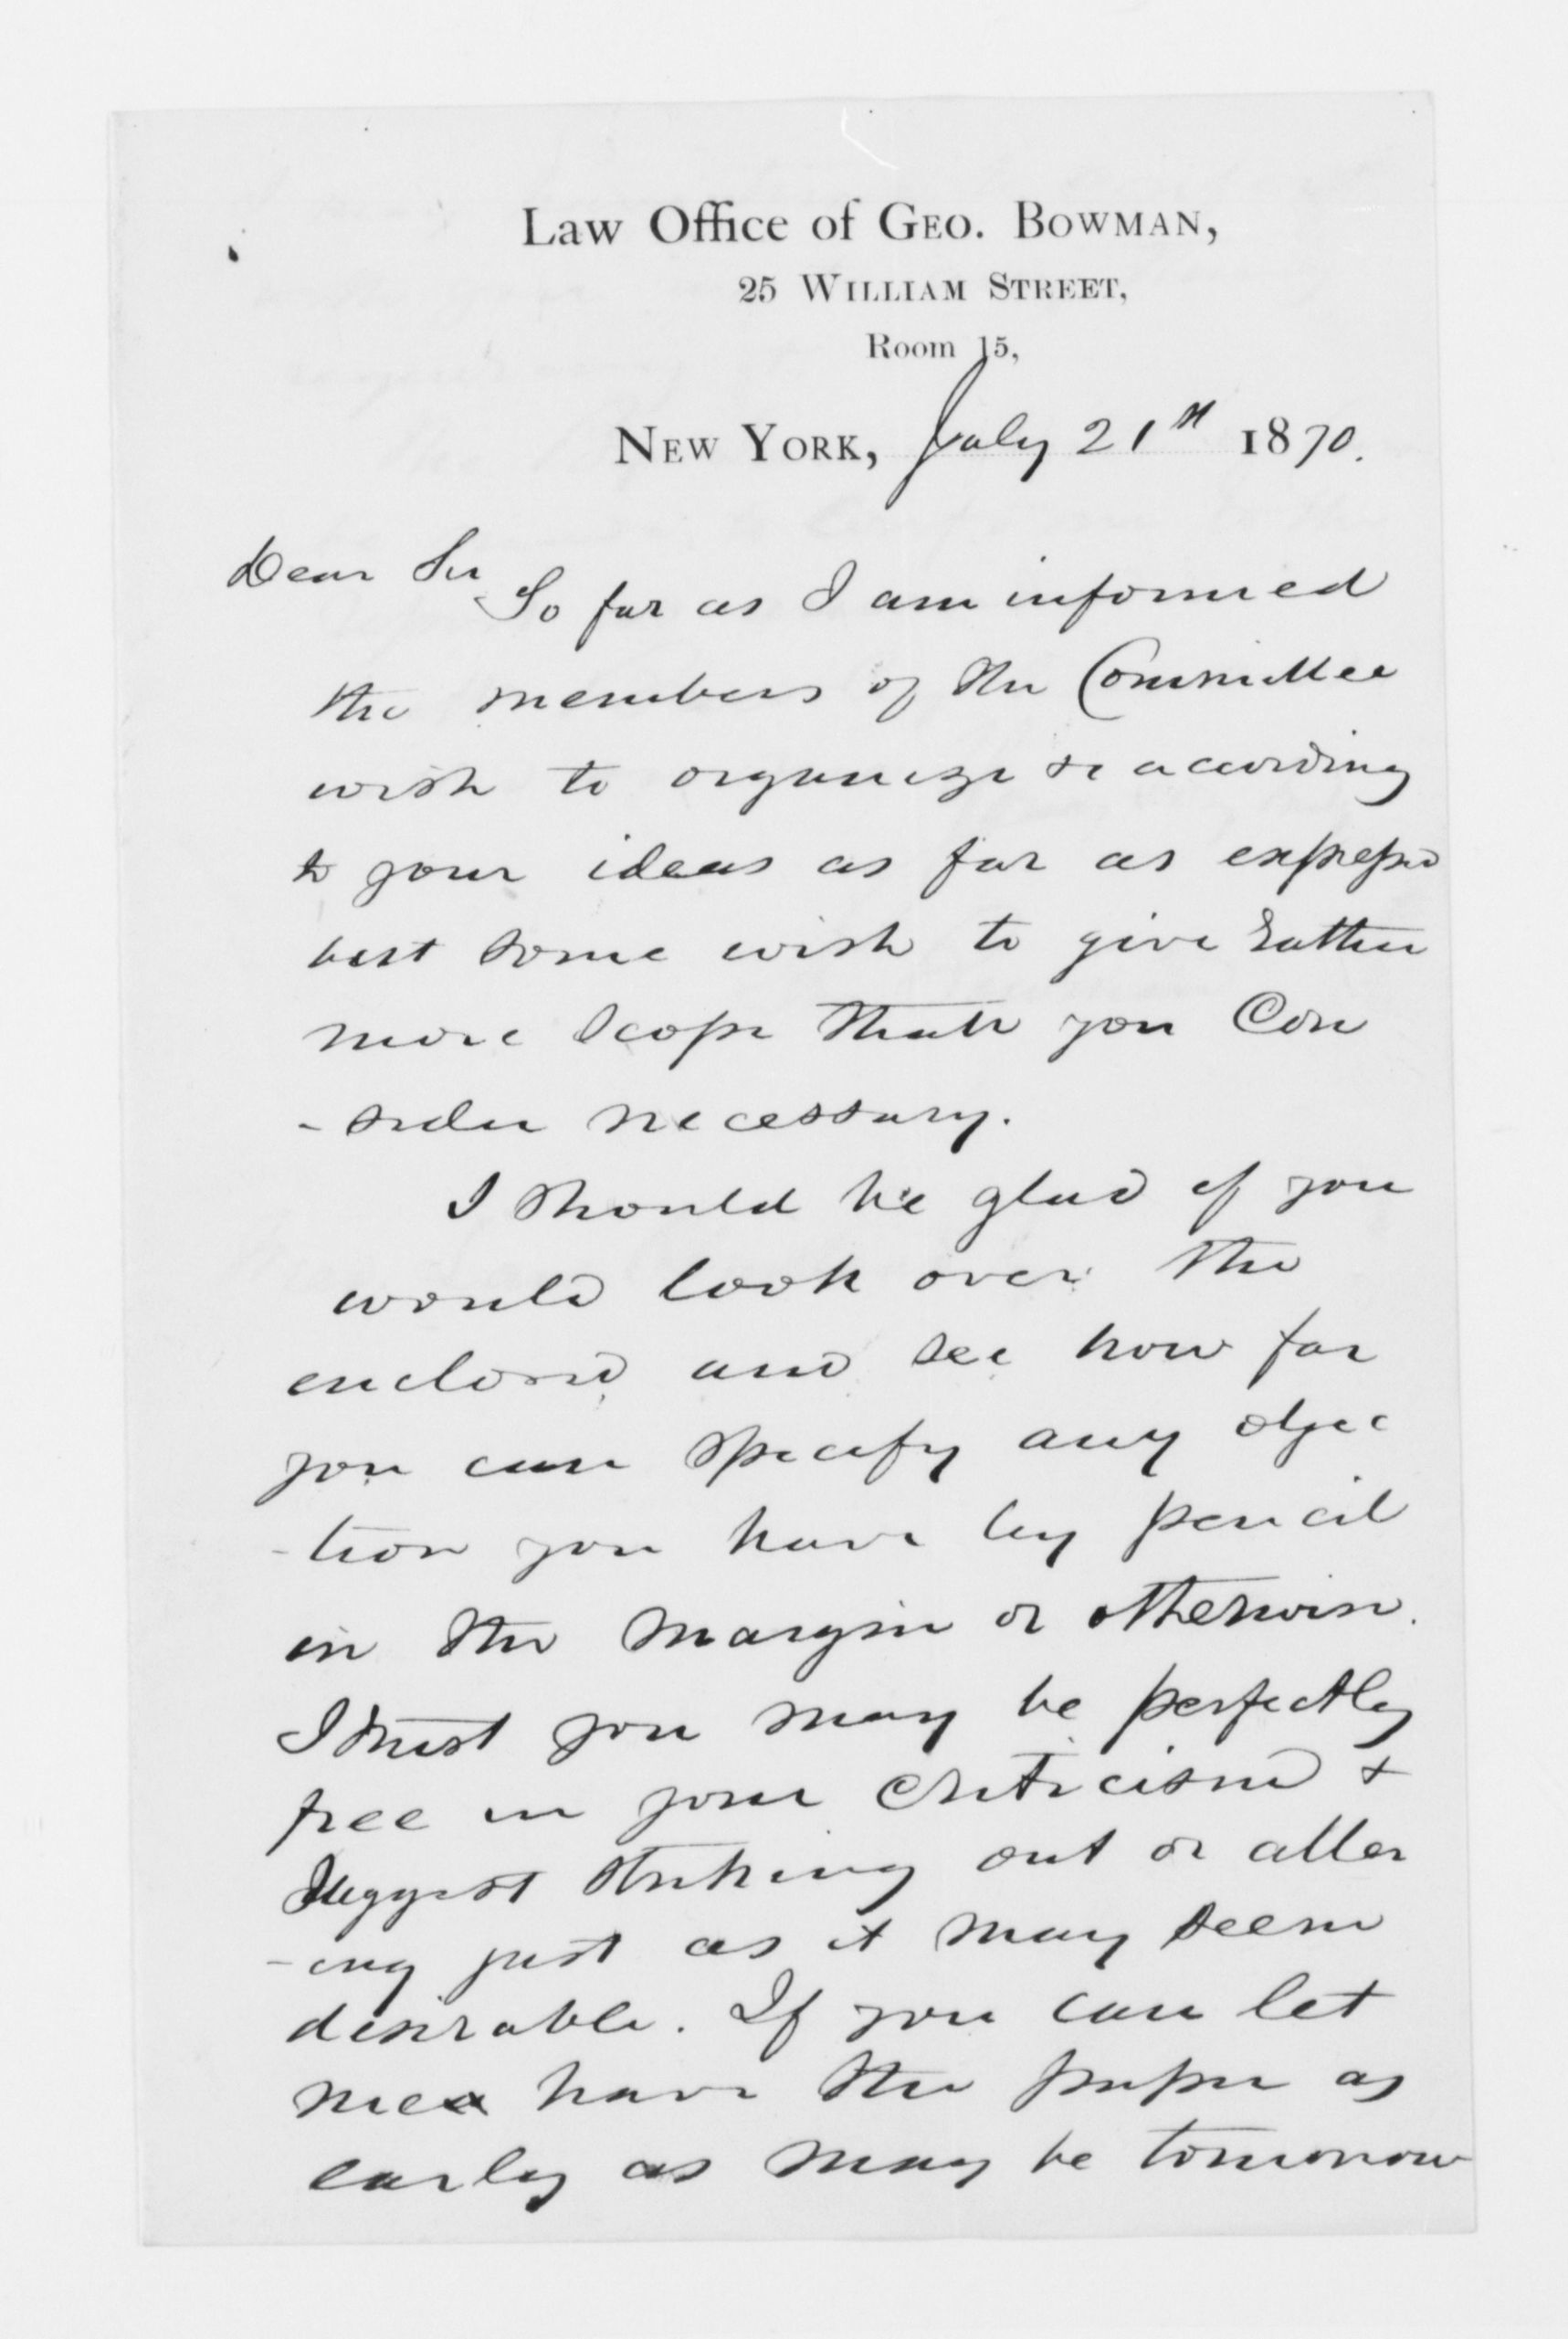 Law Office of Geo. Bowman,
25 William Street,
Room 15,
New York, July 21st 1870.
Dear Sir
So far as I am informed
the members of the Committee
wish to organize &c according
to your ideas as far as expressed
but some wish to give rather
more scope than you Con
-sider necessary.
I should be glad if you
would look over the
enclosed and see how far
you can specify any objec
-tion you have by pencil
in the margin or otherwise.
I trust you may be perfectly
free in your criticism &
suggest striking out or alter
-ing just as it may seem
desirable. If you can let
me have the paper as
early as may be tomorrow